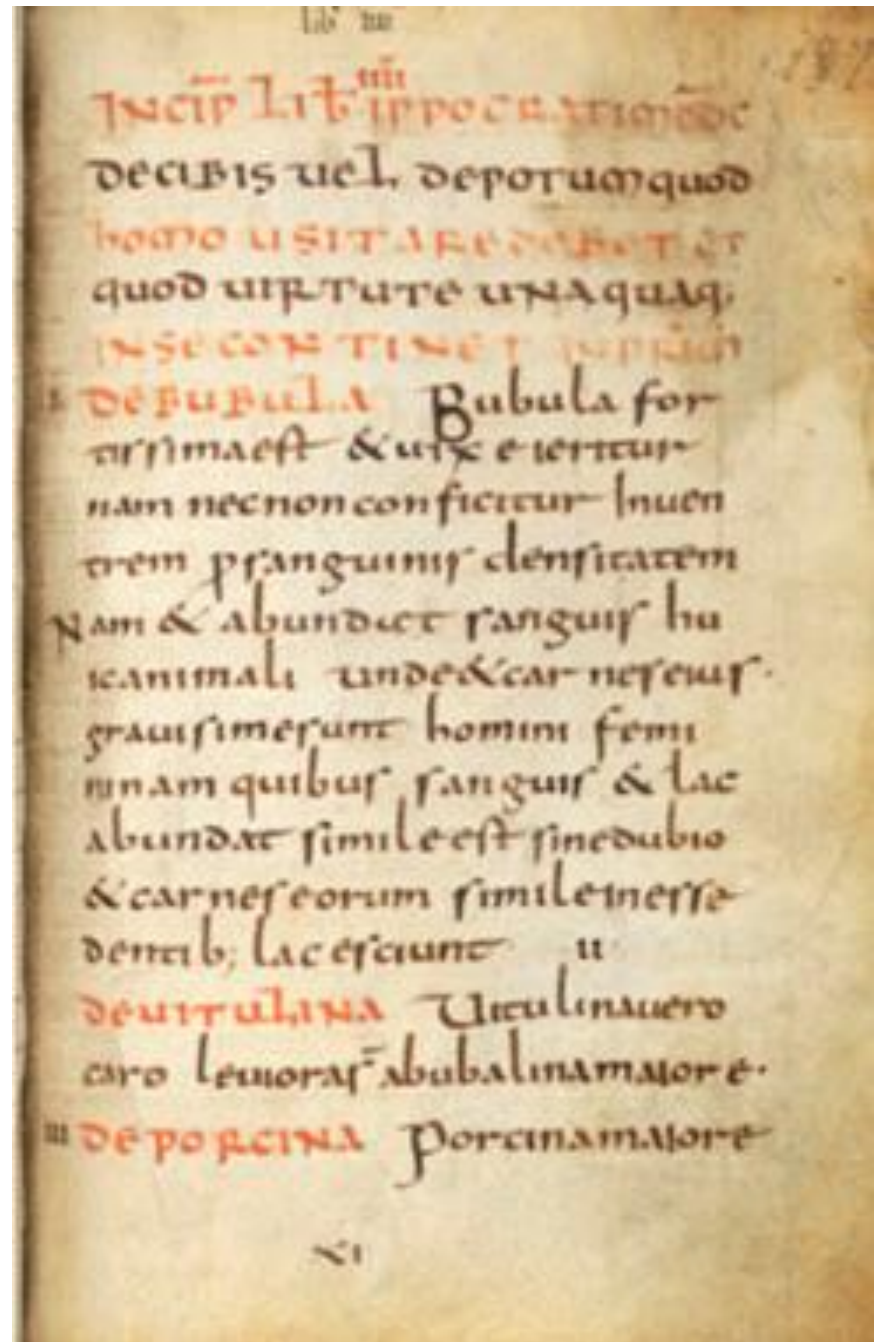 lib iiii
INCIP LIB IIII IPPOCRATI MEDC
DECIBIS UEL DEPOTUM QUOD
HOMO USITARE DEBET ET
QUOD UIRTUTE UNAQUAQ;
INSE CONTINET INPRIM
I DEBUBULA Bubula for
tissimaest & uix eieritur
nam necnonconficitur Inuen
trem psanguinis densitatem
Nam & abundıct sanguis hu
icanimali unde&carneseius.
grauisimesunt homini femi
ninam quibus sanguis & lac
abundat simileest sinedubio
&carneseorum simileinesse
dentib; lacesciunt II
DEUITULINA Uitulinauero
caro leuiorast abubalinamaiore.
III DEPORCINA Porcinamaiore
XI